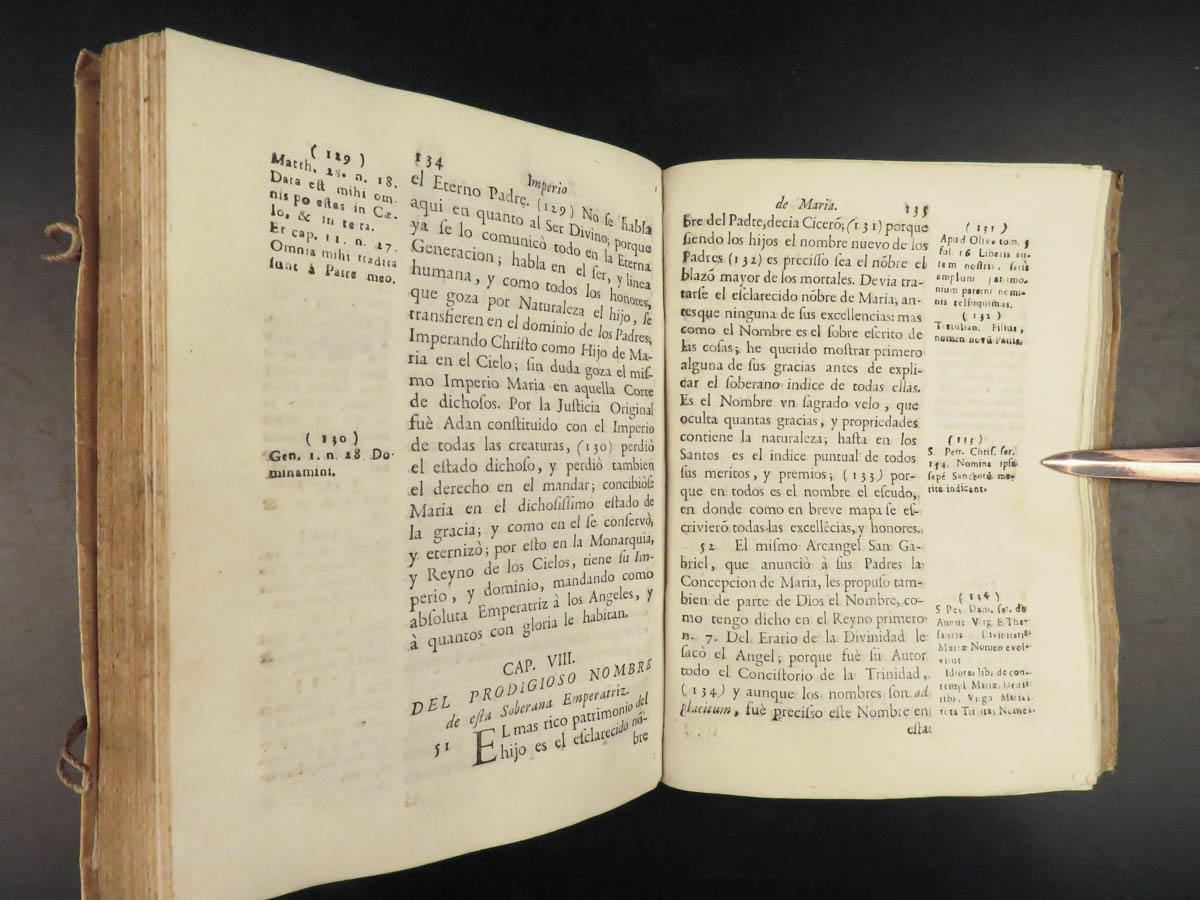 134
Imperio
(129)
Matth. 28. n. 18.
Data eſt mihi om-
nis po eſtas in Cæ-
lo, & in terra.
Et cap. 11. n. 27.
Omnia mihi tradita
ſunt á Patre meo.
el Eterno Padre. (129) No ſe habla
aqui en quanto al Ser Divino; porque
ya ſe lo comunicò todo en la Eterna
Generacion; habla en el ſer, y linea
humana, y como todos los honores,
que goza por Naturaleza el hijo, ſe
transfieren en el dominio de los Padres;
Imperando Chriſto como Hijo de Ma-
ria en el Cielo; ſin duda goza el miſ-
mo Imperio Maria en aquella Corte
de dichoſos. Por la Juſticia Original
fuè Adan conſtituido con el Imperio
de todas las creaturas, (130) perdiò
el eſtado dichoſo, y perdiò tambien
el derecho en el mandar; concibiòſe
Maria en el dichoſiſſimo eſtado de
la gracia; y como en el ſe conſervò,
y eternizò; por eſto en la Monarquia,
y Reyno de los Cielos, tiene ſu Im-
perio, y dominio, mandando como
abſoluta Emperatriz à los Angeles, y
à quantos con gloria le habitan.
(130)
Gen. 1. n. 28. Do-
minamini.
CAP. VIII.
DEL PRODIGIOSO NOMBRE
de eſta Soberana Emperatriz.
51 EL mas rico patrimonio del
hijo es el eſclarecido nō-
bre
de Maria.
135
bre del Padre, decia Cicerō; (131) porque
ſiendo los hijos el nombre nuevo de los
Padres (132) es preciſſo ſea el nōbre el
blazō mayor de los mortales. Devia tra-
tarſe el eſclarecido nōbre de Maria, an-
tesque ninguna de ſus excellencias: mas
como el Nombre es el ſobre eſcrito de
las coſas; he querido moſtrar primero
alguna de ſus gracias antes de expli-
car el ſoberano indice de todas ellas.
Es el Nombre vn ſagrado velo, que
oculta quantas gracias, y propriedades
contiene la naturaleza; haſta en los
Santos es el indice puntual de todos
ſus meritos, y premios; (133) por-
que en todos es el nombre el eſcudo,
en donde como en breve mapa ſe eſ-
crivierō todas las excellēcias, y honores.
52 El miſmo Arcangel San Ga-
briel, que anunciò à ſus Padres la
Concepcion de Maria, les propuſo tam-
bien de parte de Dios el Nombre, co-
mo tengo dicho en el Reyno primero
n. 7. Del Erario de la Divinidad le
ſacò el Angel; porque fuè ſu Autor
todo el Conciſtorio de la Trinidad,
(134) y aunque los nombres ſon ad
placitum, fuè preciſſo eſte Nombre en
eſta
(131)
Apud Oliva tom. 5
fol. 16 Liberis au-
tem noſtris, ſatis
amplum patrimo-
nium paterni nomi-
nis relinquimus.
(132)
Tertulian. Filius,
nomen novū Patris.
S. Petr. Chriſ. ſer.
154. Nomina ipſa
ſæpé Sanctorū me-
rita indicant.
(134)
S. Pet. Dam. ſer. de
Annut Virg. E The-
ſauris Divinitatis
Mariæ Nomen evol-
vitur
Idiota lib. de con-
templ. Mariæ. Dedit
tibi. Virgo Maria,
tota Trinitas Nomen